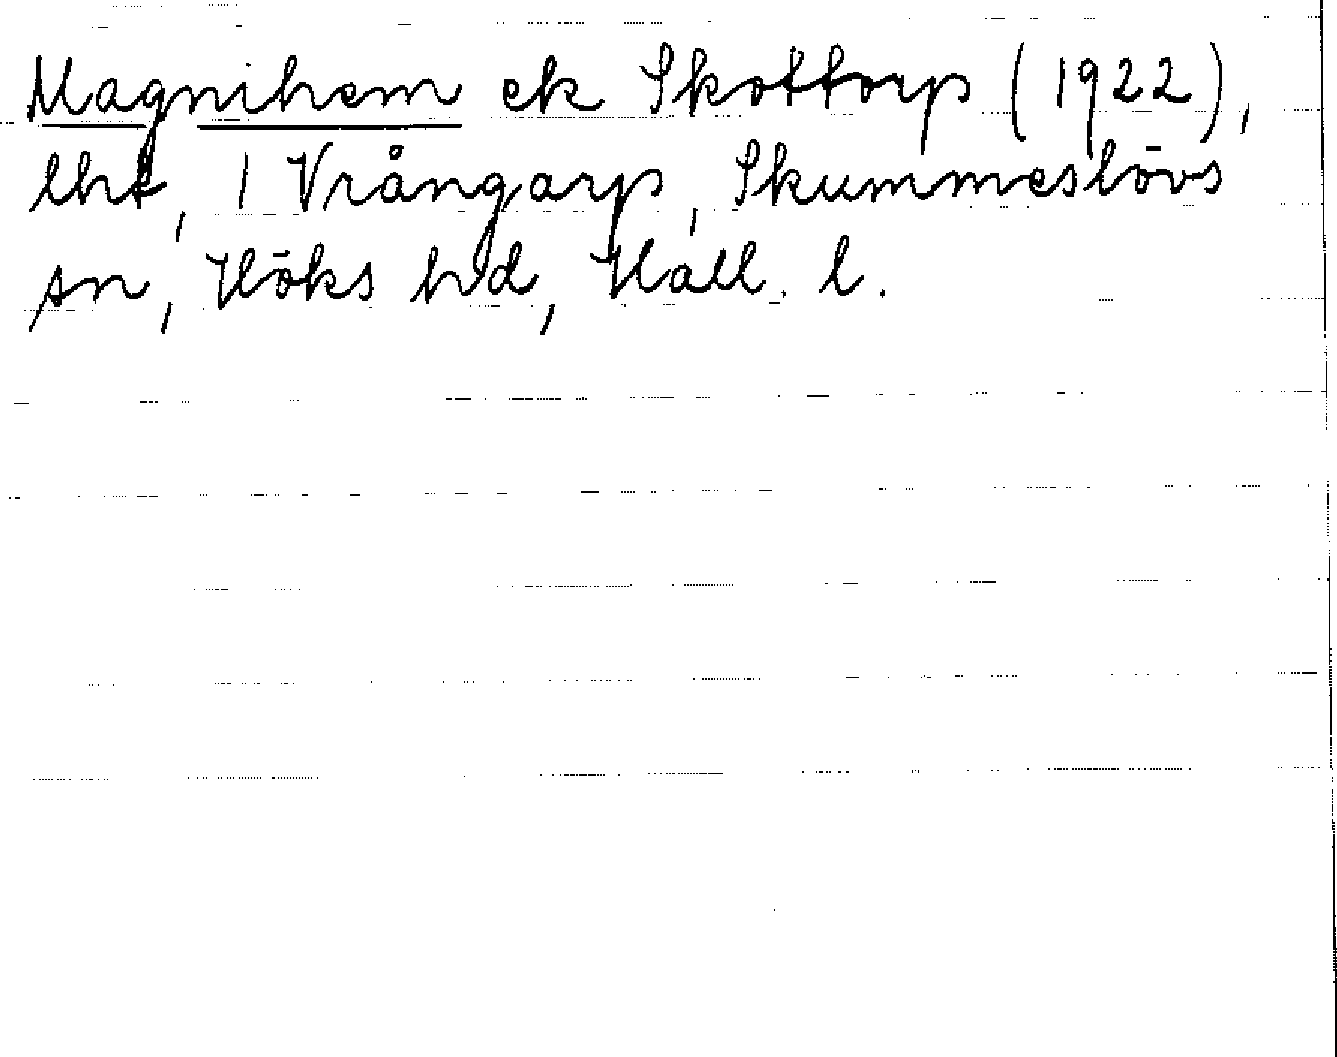 Magnihem ek Skottorp (1922),
lht, 1 Vrångarp, Skummeslövs
sn, Höks hd, Hall. l.